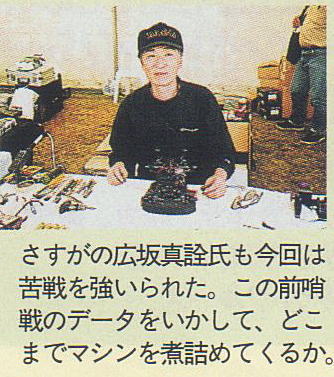 さすがの広坂真詮氏も今回は
苦戦を強いられた。この前哨
戦のデータをいかして、どこ
までマシンを煮詰めてくるか。